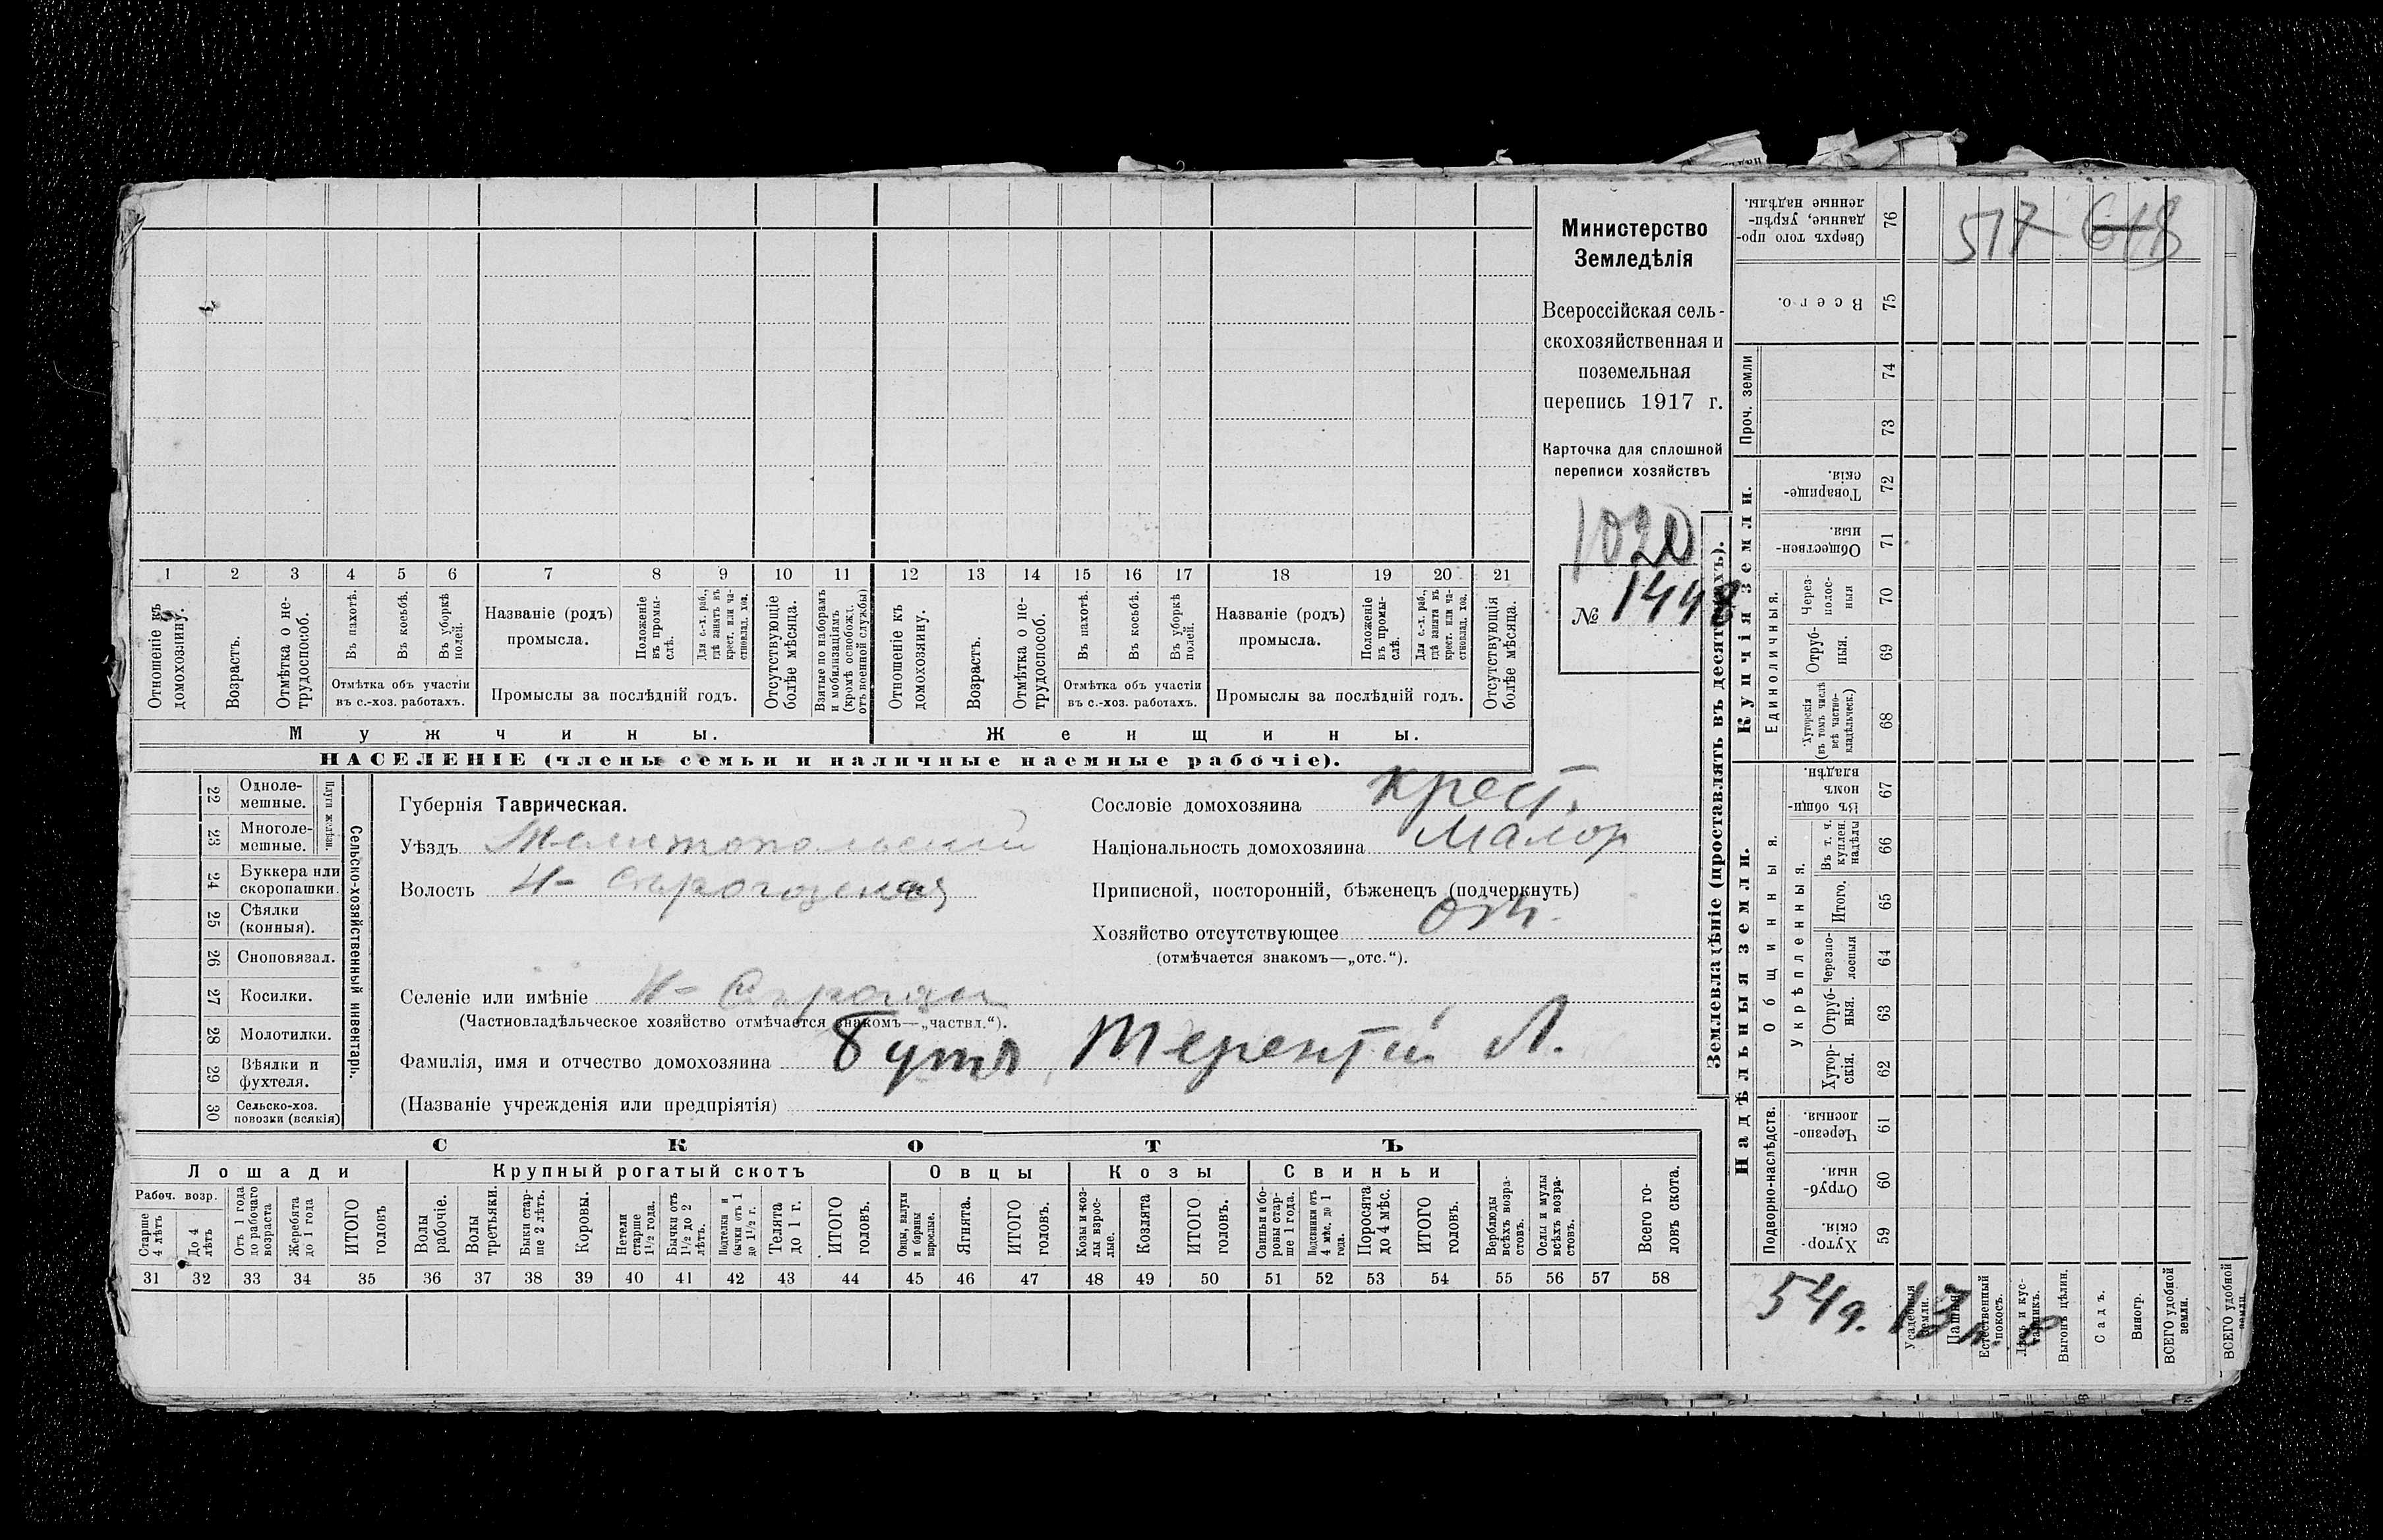 Министерство
Земледѣлія
Всероссійская сель-
скохозяйственная и
поземельная
перепись 1917 г.
Карточка для сплошной
переписи хозяйствъ
1020
№ 1448
1 2 3 4 5 6 7 8 9 10 11 12 13 14 15 16 17 18 19 20 21
Отношеніе къ домохозяину.
Возрастъ.
Отмѣтка о не-
трудоспособ.
Въ пахотѣ.
Въ косьбѣ.
Въ уборкѣ
полей.
Отмѣтка объ участіи
въ с.-хоз. работахъ.
Названіе (родъ)
промысла.
Положеніе
въ промы-
слѣ.
Для с.-х. раб.,
гдѣ занятъ въ
крест. или ча-
стновлад. хоз.
Промыслы за послѣдній годъ.
Отсутствующіе
болѣе мѣсяца.
Взятые по наборамъ
и мобилизаціямъ
(кромѣ освобожд.
отъ военной службы)
Отношеніе къ
домохозяину.
Возрастъ.
Отмѣтка о не-
трудоспособ.
Въ пахотѣ.
Въ косьбѣ.
Въ уборкѣ
полей.
Отмѣтка объ участіи
въ с.-хоз. работахъ.
Названіе (родъ)
промысла.
Положеніе
въ промы-
слѣ.
Для с.-х. раб.,
гдѣ занята въ
крест. или ча-
стновлад. хоз.
Промыслы за послѣдній годъ.
Отсутствующія
болѣе мѣсяца.
Мужчины.
Женщины.
НАСЕЛЕНІЕ (члены семьи и наличные наемные рабочіе).
22 Одноле-
мешные.
23 Многоле-
мешные.
Плуги желѣзн.
24 Буккера или
скоропашки.
25 Сѣялки
(конныя).
26 Сноповязал.
27 Косилки.
28 Молотилки.
29 Вѣялки и
фухтеля.
30 Сельско-хоз.
повозки (всякія)
Сельско-хозяйственный инвентарь.
Губернія Таврическая.
Уѣздъ Мелитопольский
Волость Н- Серогозская
Селеніе или имѣніе Н- Серогозы
(Частновладѣльческое хозяйство отмѣчается знакомъ—„частвл.“).
Фамилія, имя и отчество домохозяина Бутъ Терентій Л.
(Названіе учрежденія или предпріятія)
Сословіе домохозяина крест.
Національность домохозяина Малор
Приписной, посторонній, бѣженецъ (подчеркнуть)
Хозяйство отсутствующее
(отмѣчается знакомъ—„отс.“).
СКОТЪ
Лошади
Рабоч. возр.
Старше
4 лѣтъ
До 4
лѣтъ
Отъ 1 года
до рабочаго
возраста
Жеребята
до 1 года
ИТОГО
головъ
Крупный рогатый скотъ
Волы
рабочіе.
Волы
третьяки.
Быки стар-
ше 2 лѣтъ.
Коровы.
Нетели
старше
1½ года.
Бычки отъ
1½ до 2
лѣтъ.
Подтелки и
бычки отъ 1
до 1½ г.
Телята
до 1 г.
ИТОГО
головъ.
Овцы
Овцы, валухи
и бараны
взрослые.
Ягнята.
ИТОГО
головъ.
Козы
Козы и коз-
лы взрос-
лые.
Козлята
ИТОГО
головъ.
Свиньи
Свиньи и бо-
ровы стар-
ше 1 года.
Подсвинки отъ
4 мѣс. до 1
года.
Поросята
до 4 мѣс.
ИТОГО
головъ.
Верблюды
всѣхъ возра-
стовъ.
Ослы и мулы
всѣхъ возра-
стовъ.
Всего го-
ловъ скота.
31 32 33 34 35 36 37 38 39 40 41 42 43 44 45 46 47 48 49 50 51 52 53 54 55 56 57 58
Землевладѣніе (проставлять въ десятинахъ).
517 618
Сверхъ того про-
данные, укрѣп-
ленные надѣлы. 76
Всего. 75
Проч. земли
74
73
Купчія земли.
Товарище-
скія. 72
Обществен-
ныя. 71
Единоличныя.
Через-
полос-
ныя 70
Отруб-
ныя. 69
Хуторскія
(въ томъ числѣ
всѣ частно-
владѣльческ.) 68
Надѣльныя земли.
Общинныя.
Въ общи-
номъ
владѣн. 67
Укрѣпленныя.
Въ т. ч.
куплен.
надѣлы 66
Итого. 65
Черезпо-
лосныя 64
Отруб-
ныя. 63
Хутор-
скія. 62
Подворно-наслѣдств.
Черезпо-
лосныя. 61
Отруб-
ныя. 60
Хутор-
скія. 59
54 д. 13
Усадебныя
земли.
Пашня
Естественный
покосъ.
Лѣсъ и кус-
тарникъ.
Выгонъ цѣлин.
Садъ.
Виногр.
ВСЕГО удобной
земли.
ВСЕГО удобной
земли.